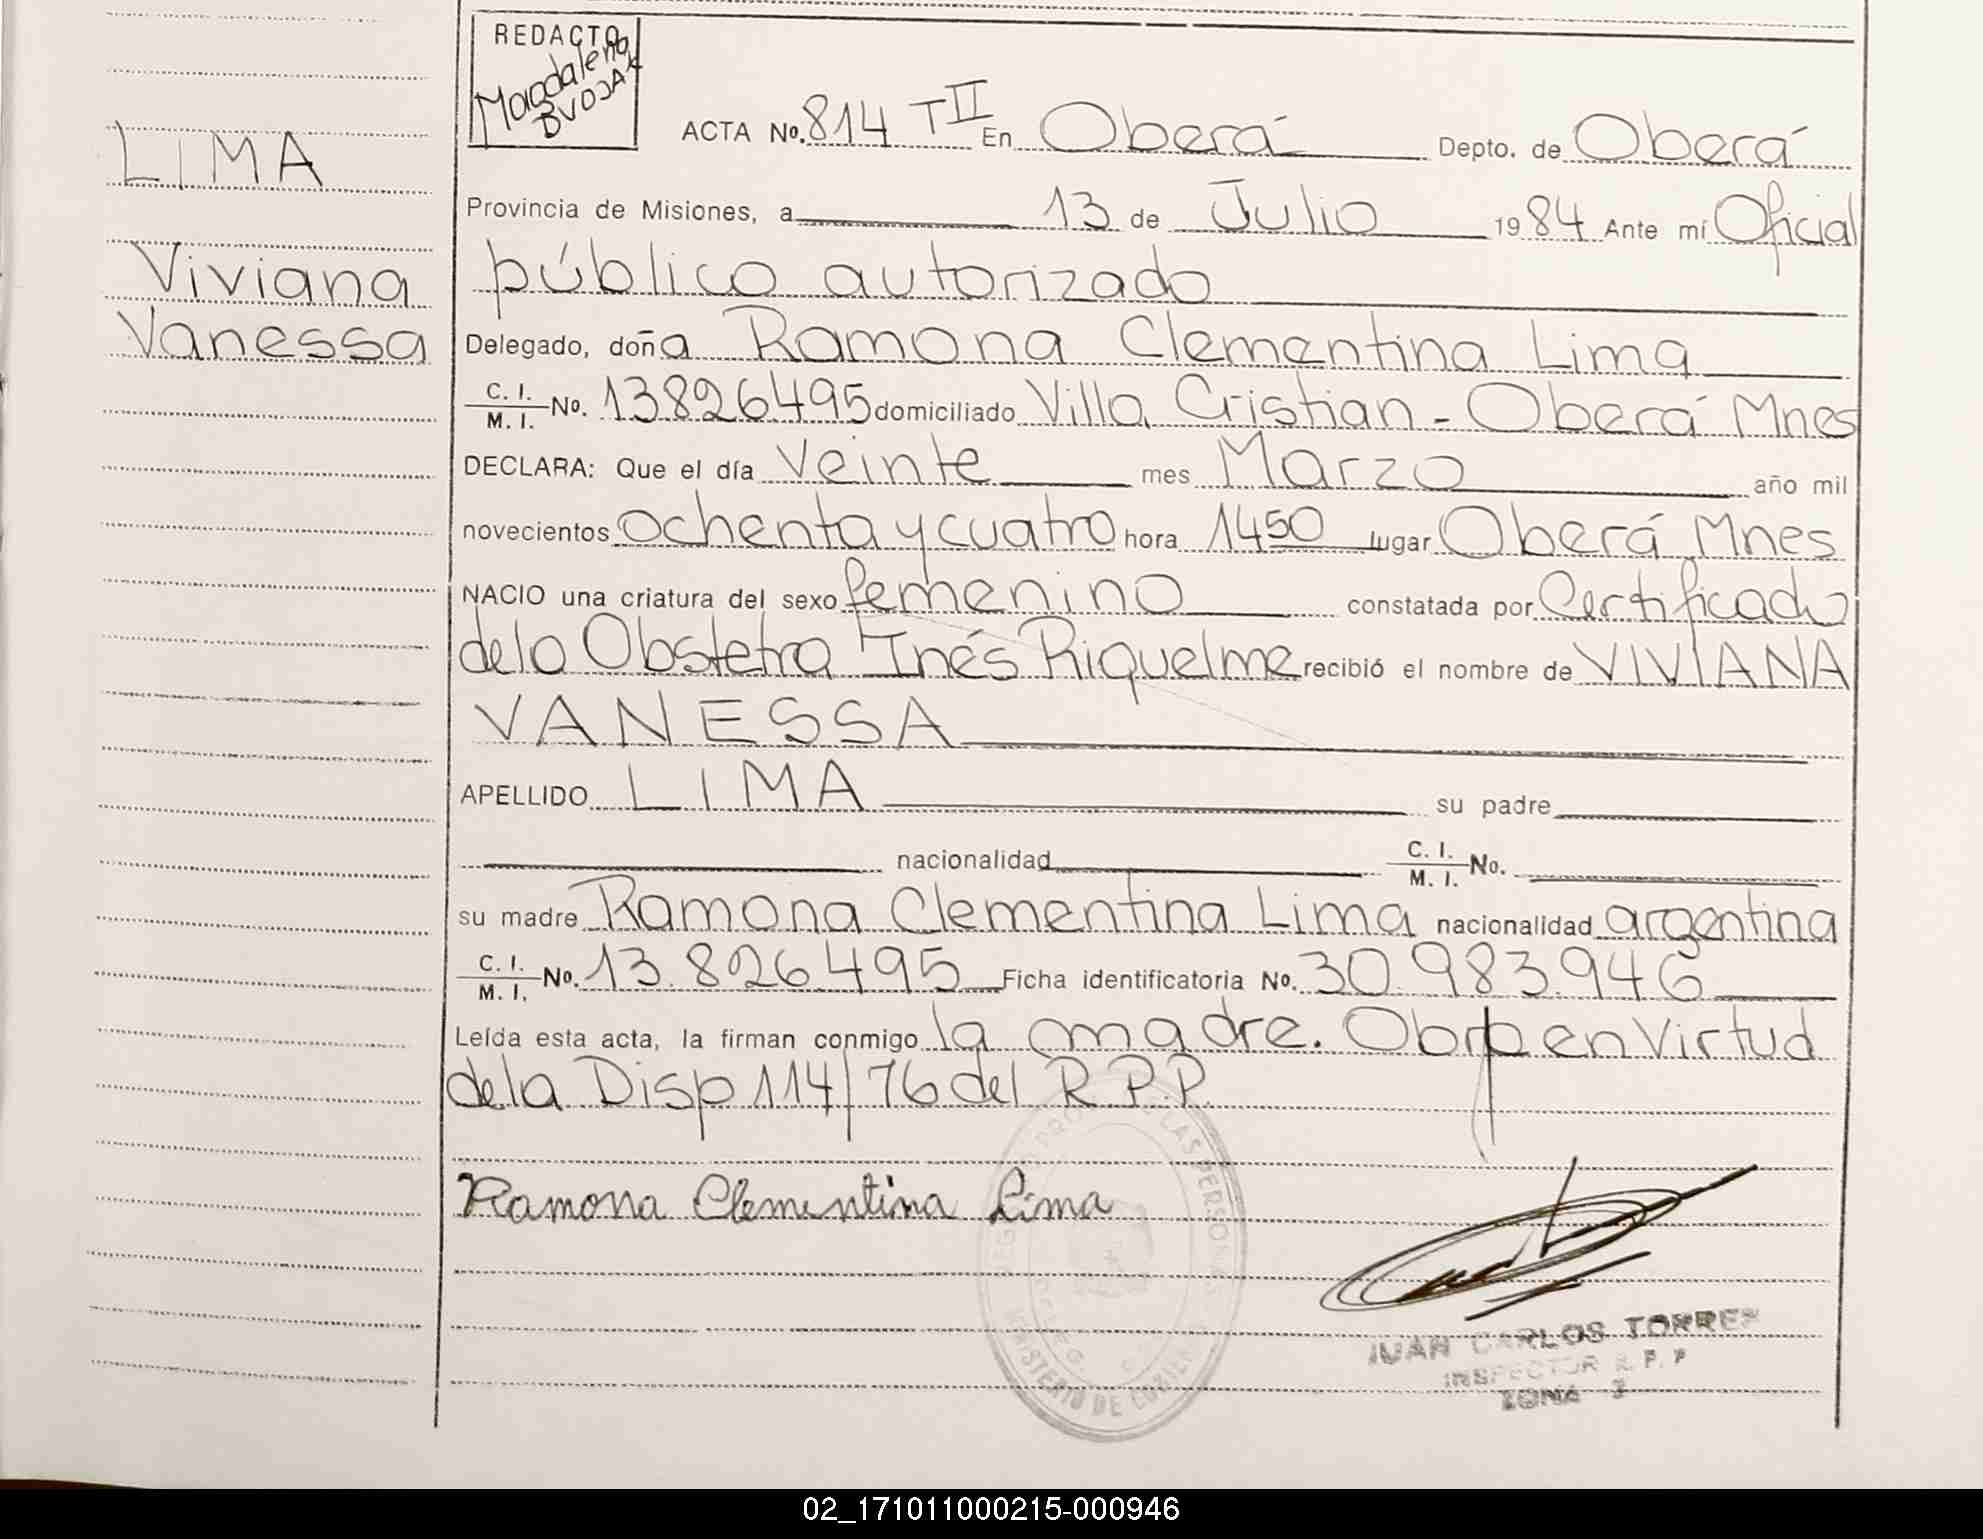 REDACTO
Magdalena
BVOJAK
LIMA
Viviana
Vanessa
ACTA No. 814 TII En Oberá Depto. de Oberá
Provincia de Misiones, a 13 de Julio 1984 Ante mí Oficial
público autorizado
Delegado, doña Ramona Clementina Lima
C. I. / M. I. No. 13826495 domiciliado Villa Cristian - Oberá Mnes
DECLARA: Que el día Veinte mes Marzo año mil
novecientos ochenta y cuatro hora 1450 lugar Oberá Mnes
NACIO una criatura del sexo femenino constatada por Certificado
de la Obstetra Inés Riquelme recibió el nombre de VIVIANA
VANESSA
APELLIDO LIMA su padre
nacionalidad C. I. / M. I. No.
su madre Ramona Clementina Lima nacionalidad argentina
C. I. / M. I. No. 13.826.495 Ficha identificatoria No. 30.983.946
Leída esta acta, la firman conmigo la madre. Obro en Virtud
de la Disp 114/76 del R.P.P.
Ramona Clementina Lima
JUAN CARLOS TORRES
INSPECTOR R. P. P
ZONA
02_171011000215-000946